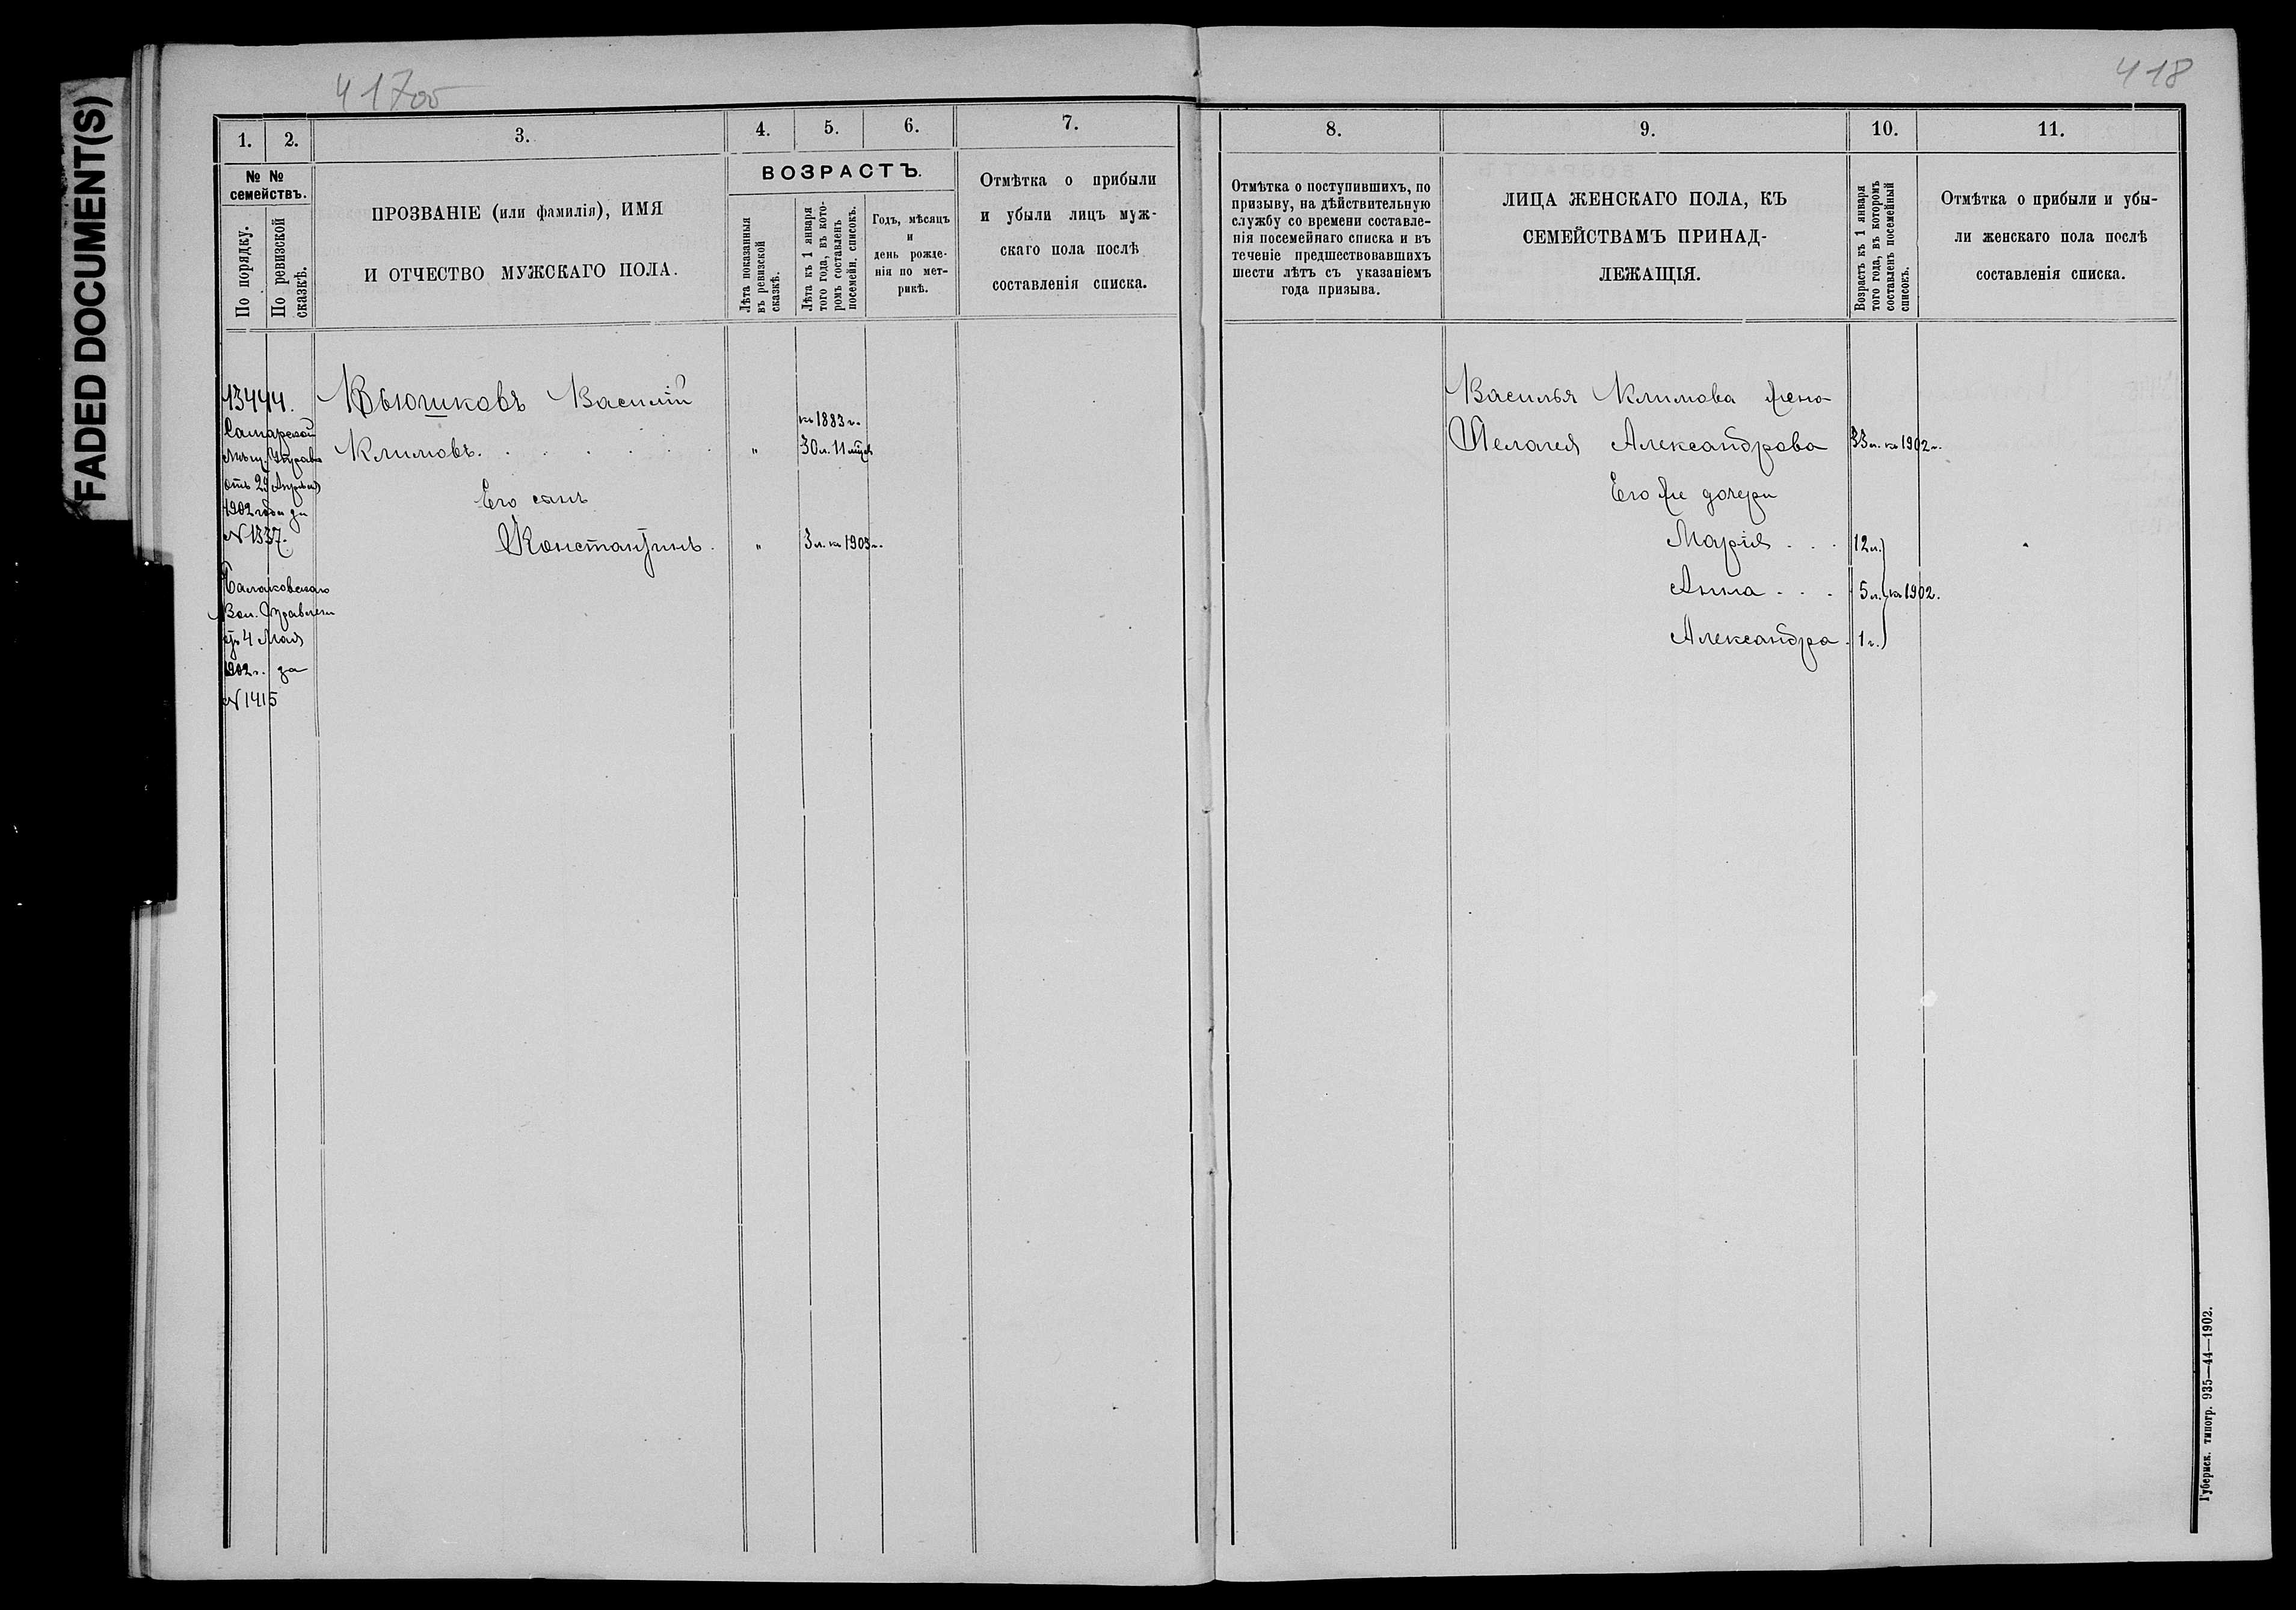 FADED DOCUMENT(S)
417об
1.
2.
3.
4.
5.
6.
7.
№ №
семействъ.
По порядку.
По ревизской
сказкѣ.
ПРОЗВАНІЕ (или фамилія), ИМЯ
И ОТЧЕСТВО МУЖСКАГО ПОЛА.
ВОЗРАСТЪ.
Лѣта показанныя
въ ревизской
сказкѣ.
Лѣта къ 1 января
того года, въ кото-
ромъ составленъ
посемейн. списокъ.
Годъ, мѣсяцъ
и
день рожде-
нія по мет-
рикѣ.
Отмѣтка о прибыли
и убыли лицъ муж-
скаго пола послѣ
составленія списка.
13444.
Самарской
Мѣщ. Управы
отъ 29 Апрѣля
1902 года за
№ 1337.
Балаковскаго
Вол. Правленія
отъ 4 Мая
1902 г. за
№ 1415
Вьюшковъ Василій
Климовъ. . . . . . .
Его сынъ
Константинъ.
"
"
къ 1883 г.
30 л. 11 мѣся
3 л. къ 1903 г.
418
8.
9.
10.
11.
Отмѣтка о поступившихъ, по
призыву, на дѣйствительную
службу со времени составле-
нія посемейнаго списка и въ
теченіе предшествовавшихъ
шести лѣтъ съ указаніемъ
года призыва.
ЛИЦА ЖЕНСКАГО ПОЛА, КЪ
СЕМЕЙСТВАМЪ ПРИНАД-
ЛЕЖАЩІЯ.
Возрастъ къ 1 января
того года, въ которомъ
составленъ посемейный
списокъ.
Отмѣтка о прибыли и убы-
ли женскаго пола послѣ
составленія списка.
Василья Климова жена
Пелагея Александрова 33 л. къ 1902 г.
Его же дочери
Марія . . . 12 л.
Анна . . . 5 л. къ 1902.
Александра . 1 г.
Губернск. типогр. 935—44—1902.